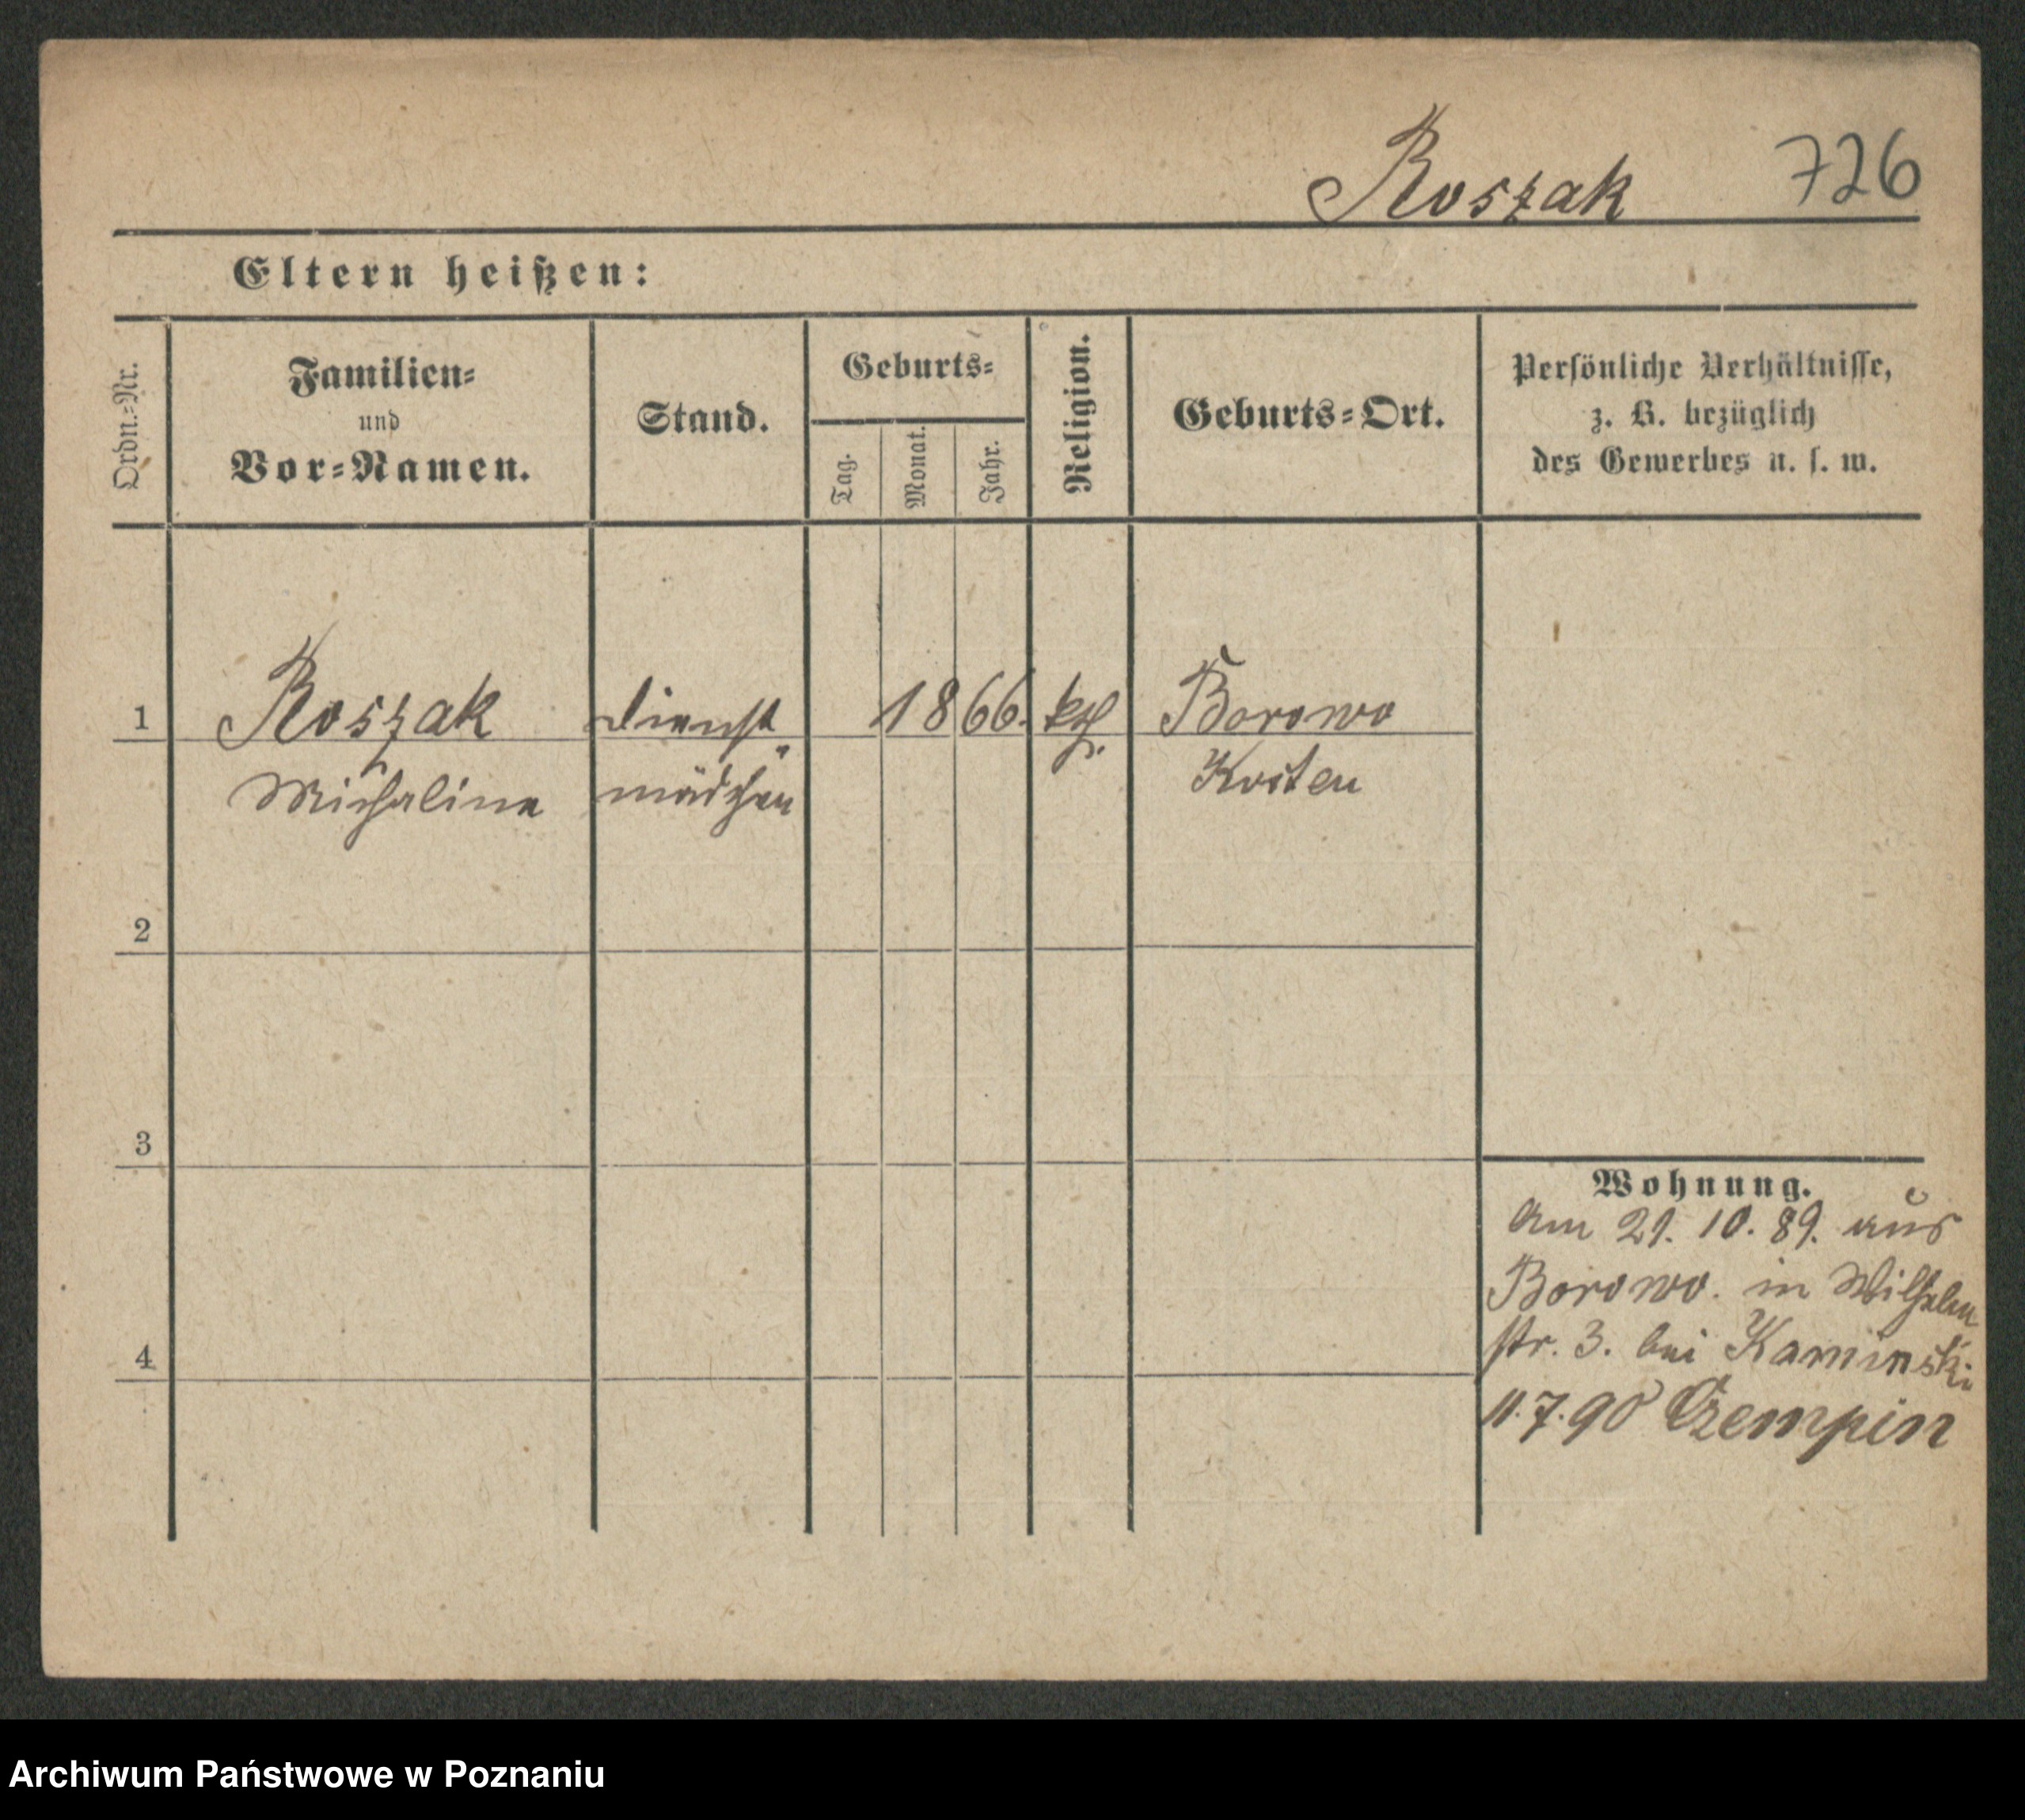 Roszak 726
Eltern heißen:
Ordn.-Nr.
Familien-
und
Vor-Namen.
Stand.
Geburts-
Tag.
Monat.
Jahr.
Religion.
Geburts-Ort.
Persönliche Verhältnisse,
z. B. bezüglich
des Gewerbes u. s. w.
1 Roszak Dienst 1866. kth. Borowo
Michaline mädchen Kosten
2
3
4
Wohnung.
Am 21. 10. 89. aus
Borowo. in Wilhelm
str. 3. bei Kaminski
11.7.90 Czempin
Archiwum Państwowe w Poznaniu